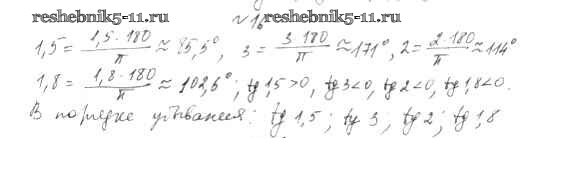 reshebnik5-11.ru № 16 reshebnik5-11.ru
1,5 = 1,5·180/π ≈ 85,5°, 3 = 3·180/π ≈ 171°, 2 = 2·180/π ≈ 114°
1,8 = 1,8·180/π ≈ 102,6°; tg 1,5 > 0, tg 3 < 0, tg 2 < 0, tg 1,8 < 0.
В порядке убывания: tg 1,5; tg 3; tg 2; tg 1,8